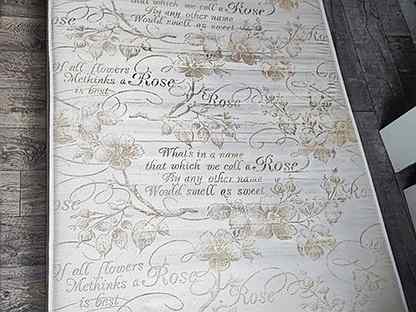 that which we call a Rose
By any other name
Would smell as sweet
Of all flowers
Methinks a Rose
is best
Rose
Whats in a name
that which we call a Rose
By any other name
Would smell as sweet
Rose
Of all flowers
Methinks a Rose
is best
Rose